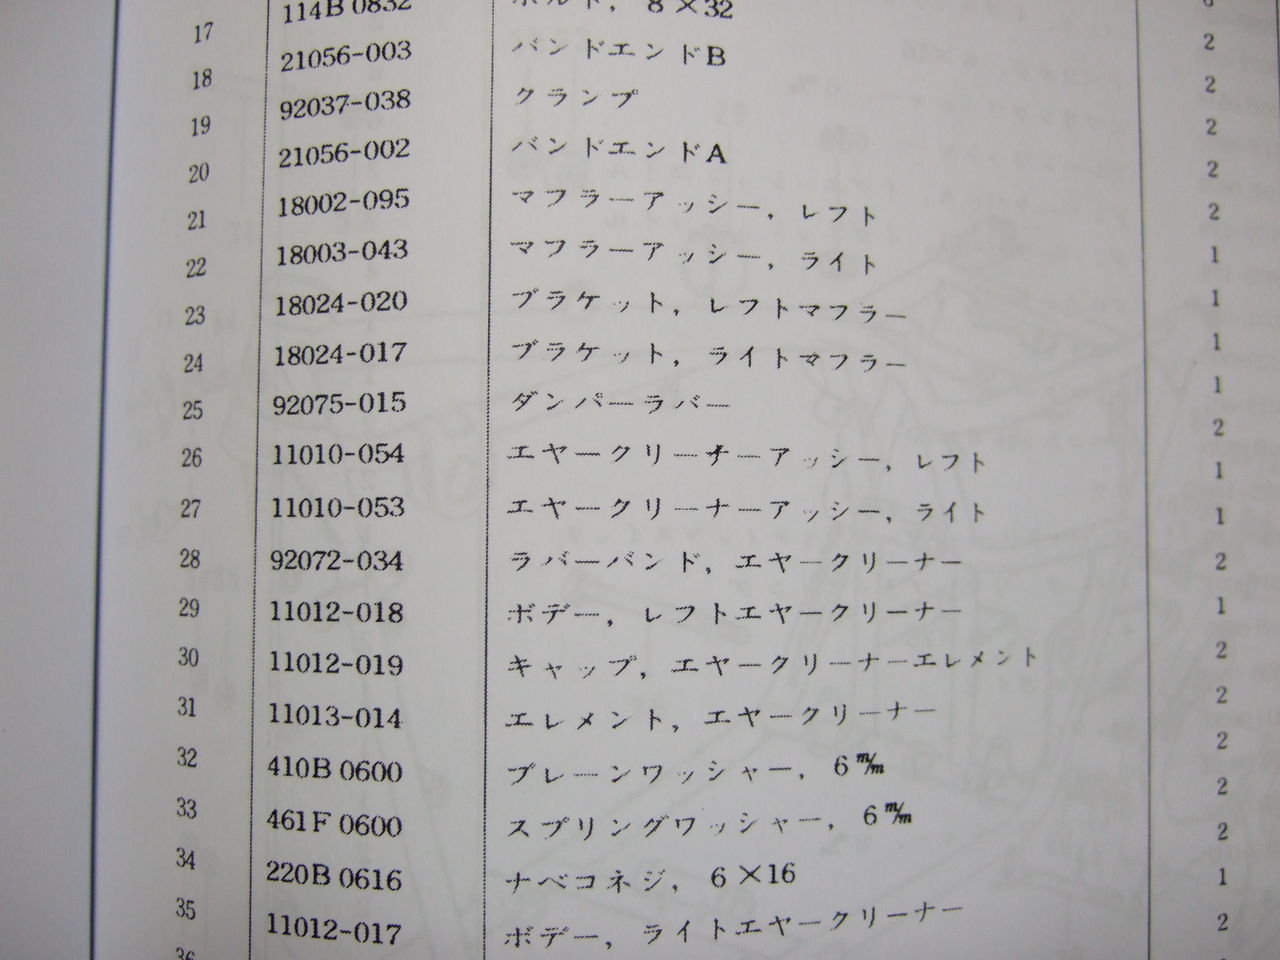 2
17 114B0832 ボルト, 8×32 2
18 21056-003 バンドエンドB 2
19 92037-038 クランプ 2
20 21056-002 バンドエンドA 2
21 18002-095 マフラーアッシー, レフト 1
22 18003-043 マフラーアッシー, ライト 1
23 18024-020 ブラケット, レフトマフラー 1
24 18024-017 ブラケット, ライトマフラー 1
25 92075-015 ダンパーラバー 2
26 11010-054 エヤークリーナーアッシー, レフト 1
27 11010-053 エヤークリーナーアッシー, ライト 1
28 92072-034 ラバーバンド, エヤークリーナー 2
29 11012-018 ボデー, レフトエヤークリーナー 1
30 11012-019 キャップ, エヤークリーナーエレメント 2
31 11013-014 エレメント, エヤークリーナー 2
32 410B0600 プレーンワッシャー, 6m/m 2
33 461F0600 スプリングワッシャー, 6m/m 2
34 220B0616 ナベコネジ, 6×16 2
35 11012-017 ボデー, ライトエヤークリーナー 1
36 2